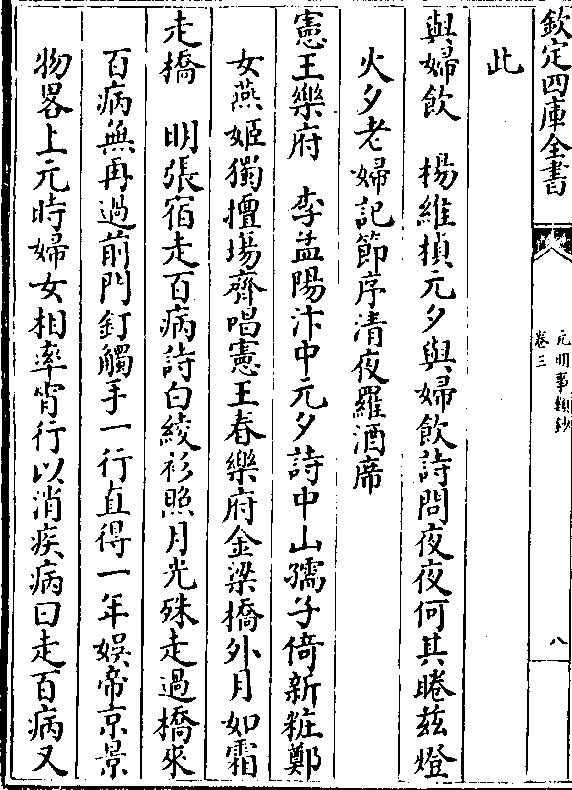 欽定四庫全書
元明事類鈔
卷三
八
此
與婦飲　楊維楨元夕與婦飲詩問夜夜何其睠兹燈
火夕老婦記節序清夜羅酒席
憲王樂府　李孟陽汴中元夕詩中山孺子倚新粧鄭
女燕姬獨擅場齊唱憲王春樂府金梁橋外月如霜
走橋　明張宿走百病詩白綾衫照月光殊走過橋來
百病無再過前門釘觸手一行直得一年娛帝京景
物畧上元時婦女相率宵行以消疾病曰走百病又